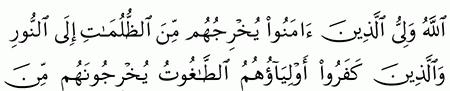 ٱللَّهُ وَلِىُّ ٱلَّذِينَ ءَامَنُوا۟ يُخْرِجُهُم مِّنَ ٱلظُّلُمَـٰتِ إِلَى ٱلنُّورِ
وَٱلَّذِينَ كَفَرُوٓا۟ أَوْلِيَآؤُهُمُ ٱلطَّـٰغُوتُ يُخْرِجُونَهُم مِّنَ